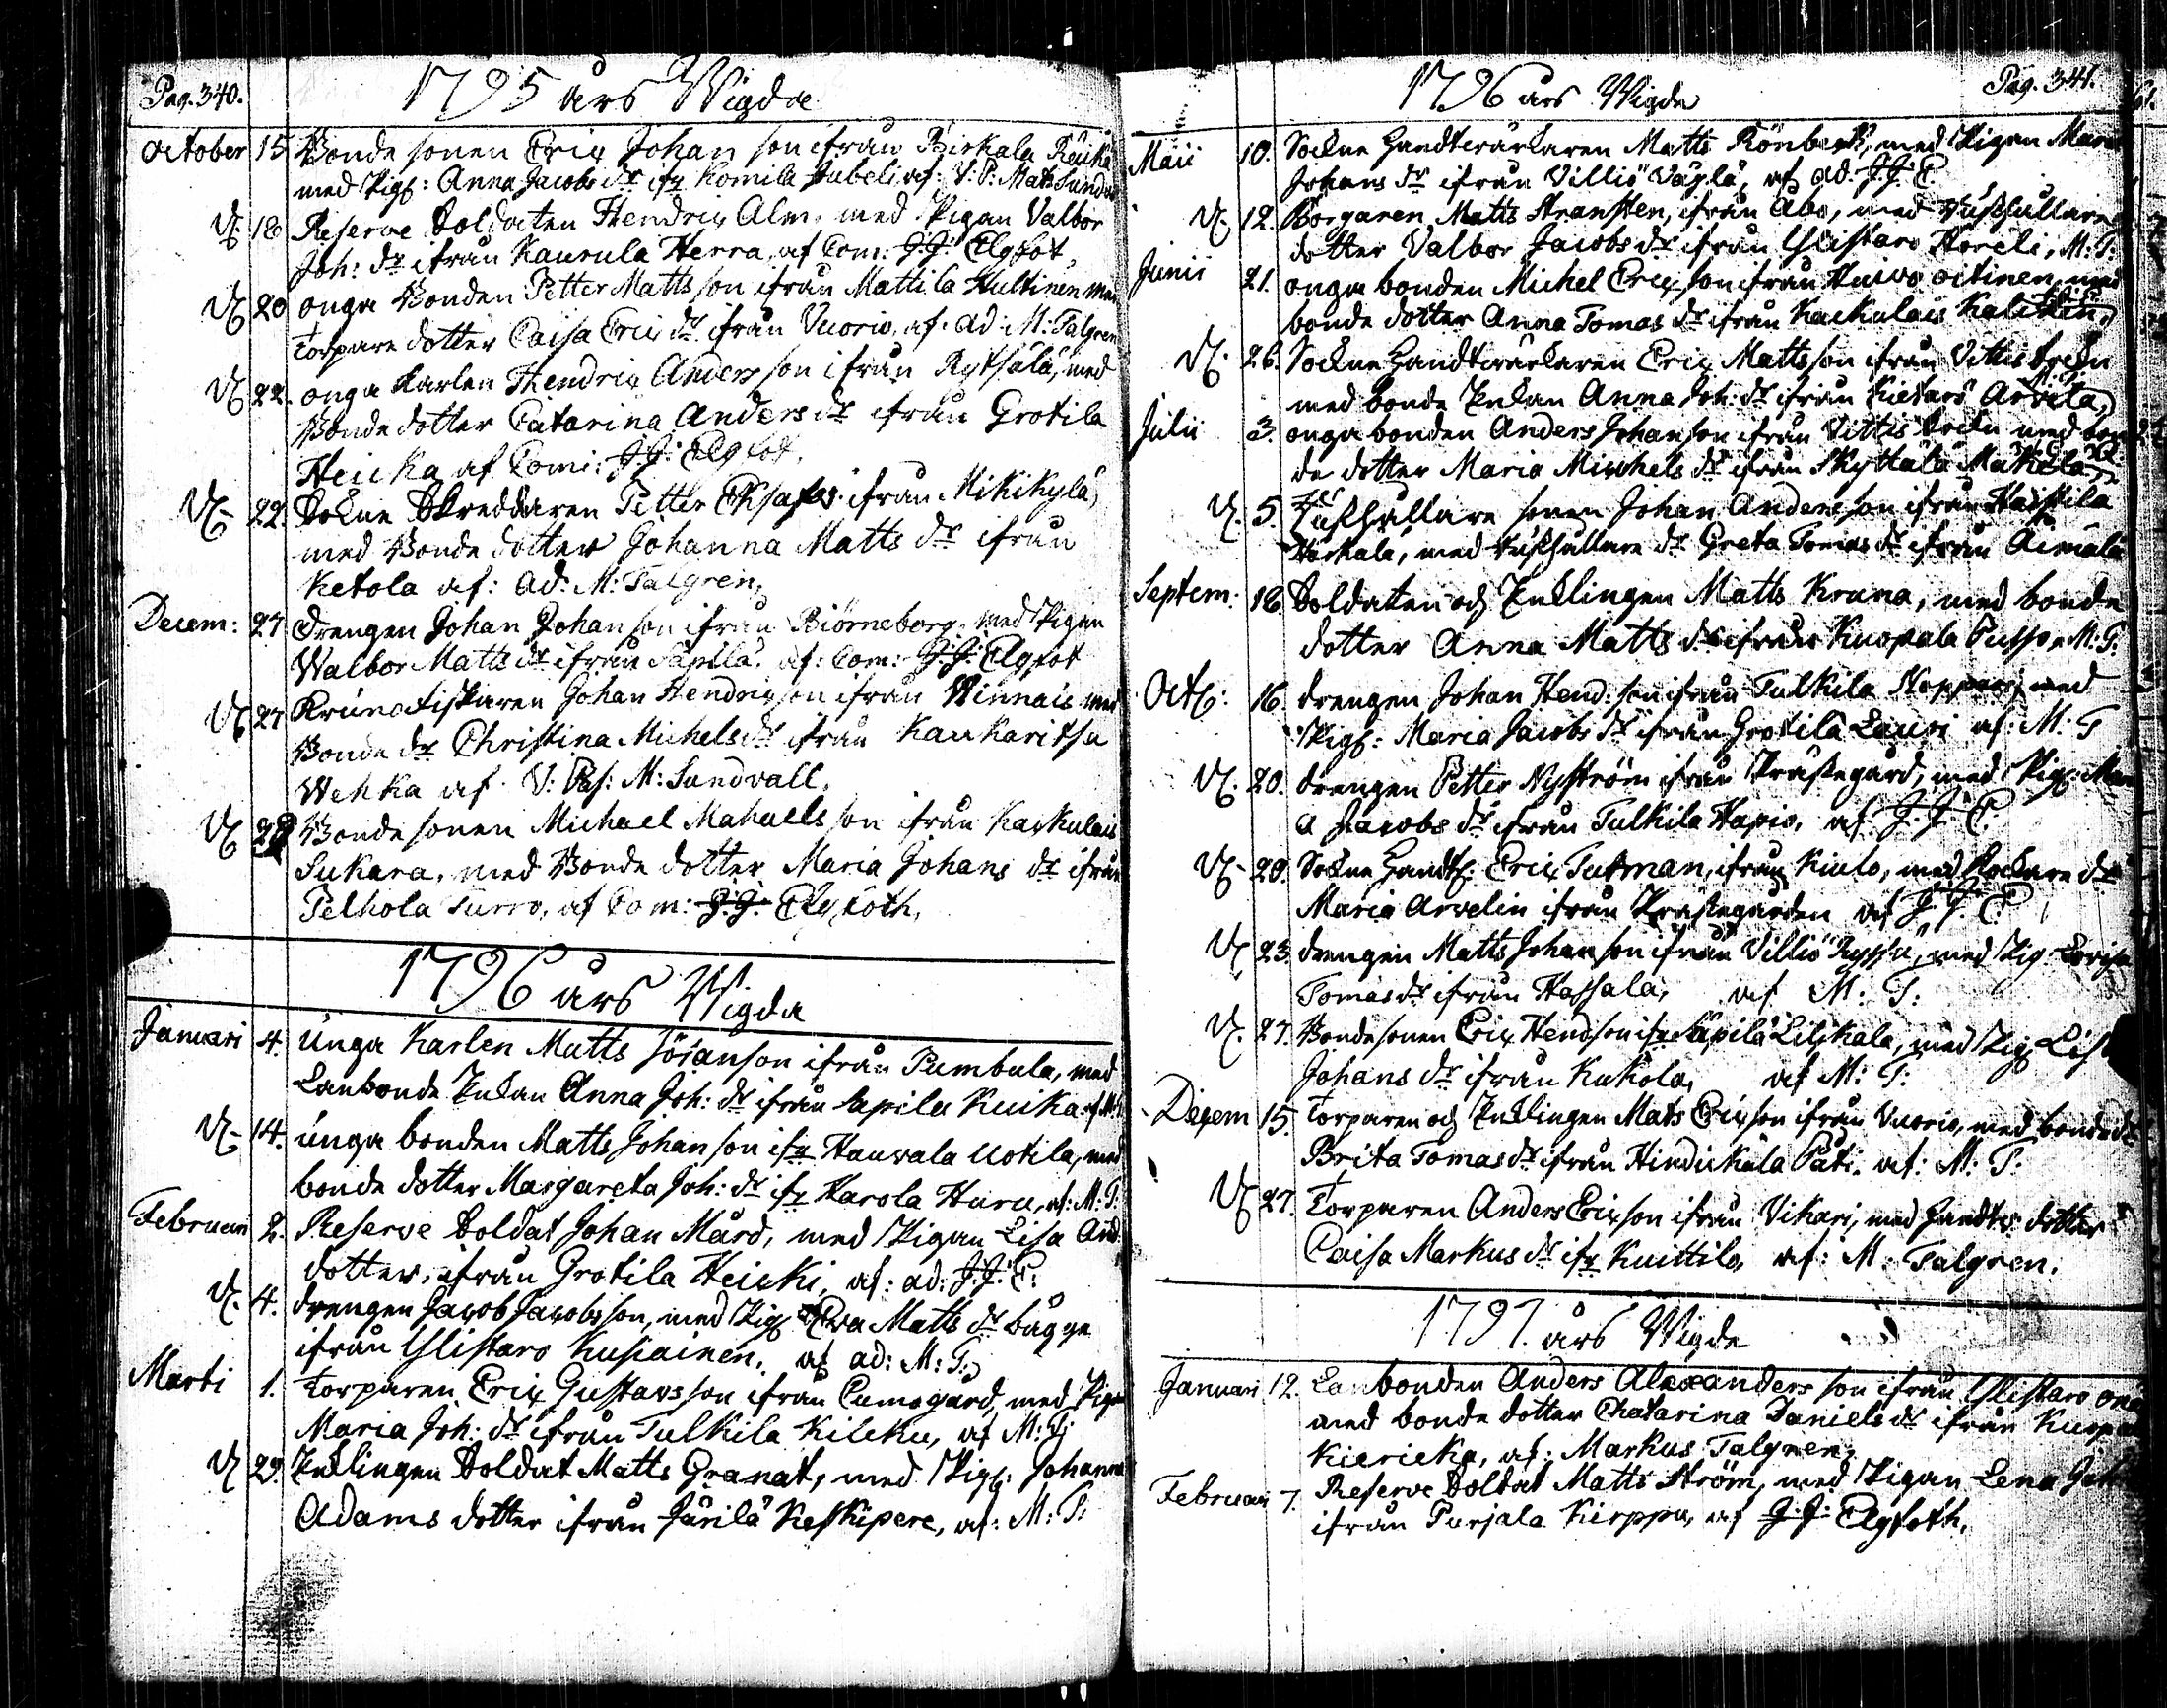 Pag. 340.
1795 års Wigda
October 15 Bonde sonen Eric Johan son ifrån Birkala
med Pig: Anna Jacobs dr ifr Komila Jubeli af: V: P: Mats Sundv
18 Reserve Soldaten Hendric Alm, med Pigan Valbor
Joh: dr ifrån Kaurula Herra, af Com: J: J: Elgfot,
20 onga Bonden Petter Matts son ifrån Mattila Hultinen med
Torpare dotter Caisa Eric dr ifrån Vuorio, af: ad: M: Talgren
22. onga Karlen Hendric Anders son ifrån Rytsälä, med
Bonde dotter Catarina Anders dr ifrån Grotila
Heicka af Comi: J: J: Elgfot.
22. Sokne Skreddaren Petter ifrån Mikikylä,
med Bonde dotter Johanna Matts dr ifrån
Ketola af: ad: M: Talgren,
Decem: 27 Drengen Johan Johan son ifrån Biörneborg, med Pigan
Walbor Matts dr ifrån Säpilä. af: Com: J: J: Elgfot
27 Krunofiskaren Johan Hendric son ifrån Winnais med
Bonde dr Christina Michels dr ifrån Kaukaritsa
Wehka af V: Pas: M: Sundvall.
28 Bonde sonen Michael Mahaels son ifrån Kackulais
Sukara, med Bonde dotter Maria Johans dr ifrån
Pelhola Turro, af Com: J: J: Elgfoth,
1796 års Wigda
Januari 4. unga Karlen Matts Jöranson ifrån Pumbula, med
Lanbonde Enkan Anna Joh: dr ifrån Sapila Kuika af M:
14. unga bonden Matts Johan son ifr Hauvala Uotila, med
bonde dotter Margareta Joh: dr ifr Karola Haru, af: M: T:
Februari 2. Reserve Soldat Johan Mård, med Pigan Lisa And
dotter, ifrån Grotila Heicki, af: ad: J: J: E:
4. drengen Jacob Jacobs son, med Pig Eva Matts dr bägge
ifrån Ylistaro Kusiainen. af ad: M: T:
Marti 1. Torparen Eric Gustavs son ifrån Cumogård, med Pigan
Maria Joh: dr ifrån Tulkila Kilcku, af M: T:
29. Enklingen Soldat Matts Granat, med Pig: Johanna
Adams dotter ifrån Järilä Keskipere, af: M: T:
1796 års Wigda
Pag. 341.
Maii 10. Sokne Handtvärkaren Matts Rönberg, med Pigan Maria
Johans dr ifrån Villiö Väglä, af ad: J: J: E.
12. Borgaren Matts Stransten, ifrån Åbo, med Rushållare
dotter Valbor Jacobs dr ifrån Ylistaro Horeli, M: T:
Junii 21. onga bonden Michel Eric son ifrån Huivo octinen, med
bonde dotter Anna Tomas dr ifrån Kackulais
26. Sokne Handtvärkaren Eric Matts son ifrån Vittis Sokn
med bonde Enkan Anna Joh: dr ifrån Kietarö Arvela,
Julii 3. onga bonden Anders Johan son ifrån Vittis Sokn med bon
de dotter Maria Michels dr ifrån Skyttälä Mäkelä
5. Rushållare sonen Johan Anders son ifrån Haistila
Härkälä, med Rushållare dr Greta Tomas dr ifrån Äimälä
Septem: 18. Soldaten och Enklingen Matts Krana, med bonde
dotter Anna Matts dr ifrån Kuopala Pusspa M: T:
Oct: 16. drengen Johan Hend: son ifrån Tulkila med
Pig: Maria Jacobs dr ifrån Grotila Lauri af: M: T
20. drengen Petter Nyström ifrån Prästegård, med Pig: Mari
a Jacobs dr ifrån Tulkila Hapio. af J: J: E.
20. Sokne Handt: Eric Tutman, ifrån Kiulo, med Klockare dr
Maria Arvelin ifrån Prästegården af J: J: E
23. drengen Matts Johan son ifrån Villiö Ryssä, med Pig Lovisa
Tomas dr ifrån Hassala, af M: T:
27. Bonde sonen Eric Hend son ifr Säpilä Lilikala, med Pig Lisa
Johans dr ifrån Kukola, af M: T:
Decem 15. Torparen och Enklingen Mats Eric son ifrån Vuorio, med bonde dr
Brita Tomas dr ifrån Hindickälä Päti. af: M: T:
27. Torparen Anders Eric son ifrån Vikari, med Handtv: dotter
Caisa Markus dr ifr Kuittila, af: M: Talgren.
1797 års Wigde
Januari 12. Lanbonden Anders Alexanders son ifrån Ylistaro
med bonde dotter Chatarina Daniels dr ifrån
Kiericka, af: Markus Talgren,
Februari 7. Reserve Soldat Matts Ström, med Pigan Lena Joh
ifrån Purjala Kirppu, af J: J: Elgfoth,